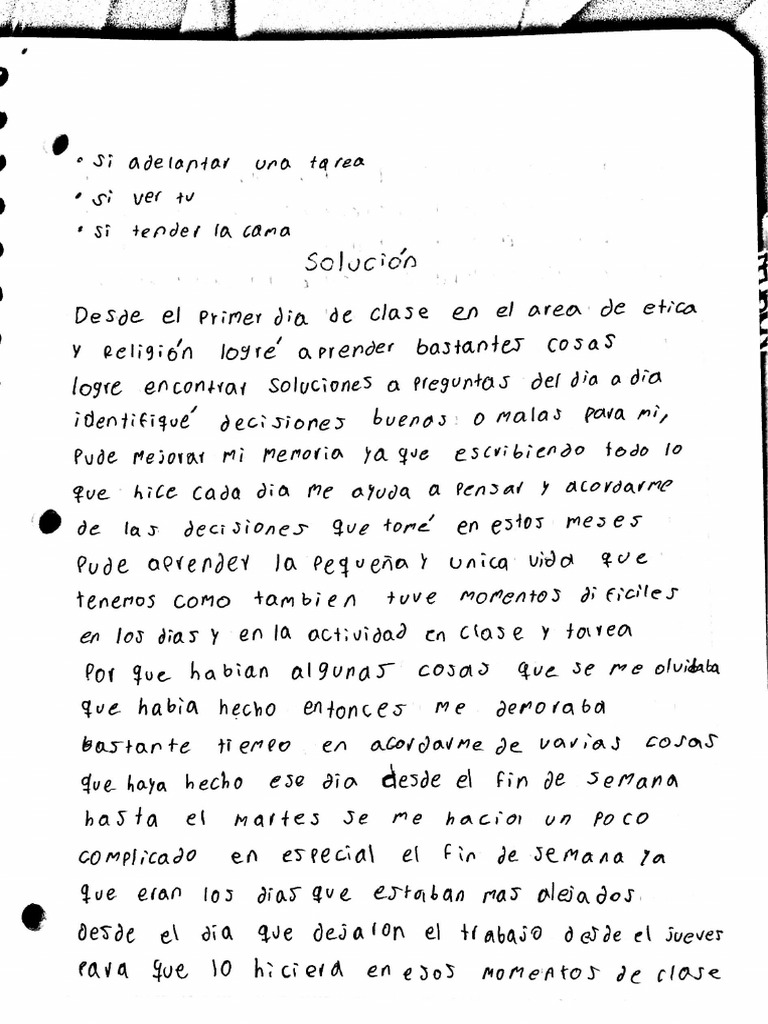 • si adelantar una tarea
• si ver tv
• si tender la cama
Solución
Desde el primer dia de clase en el area de etica
y Religión logré aprender bastantes cosas
logre encontrar soluciones a preguntas del dia a dia
identifiqué decisiones buenas o malas para mi,
Pude mejorar mi memoria ya que escribiendo todo lo
que hice cada dia me ayuda a pensar y acordarme
de las decisiones que tomé en estos meses
Pude aprender la pequeña y unica vida que
tenemos como tambien tuve momentos dificiles
en los dias y en la actividad en clase y tarea
Por que habian algunas cosas que se me olvidaba
que habia hecho entonces me demoraba
bastante tiempo en acordarme de varias cosas
que haya hecho ese dia desde el fin de semana
hasta el martes se me hacia un poco
complicado en especial el fin de semana ya
que eran los dias que estaban mas alejados
desde el dia que dejaron el trabajo desde el jueves
para que lo hiciera en esos momentos de clase